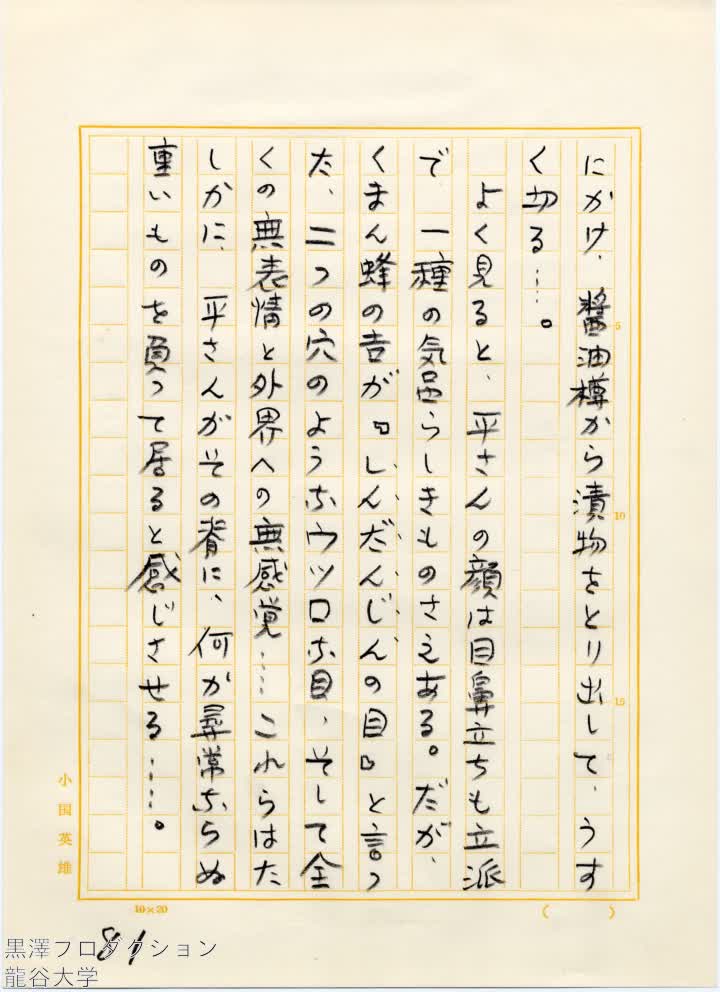 にかけ、醬油樽から漬物をとり出して、うす
く切る……。
よく見ると、平さんの顔は目鼻立ちも立派
で、一種の気品らしきものさえある。だが、
くまん蜂の吉が『しんだんじんの目』と言っ
た、二つの穴のようなウツロな目、そして全
くの無表情と外界への無感覚……これらはた
しかに、平さんがその脊に、何か尋常ならぬ
重いものを負って居ると感じさせる……。
5
10
15
小国英雄
10×20
( )
81
黒澤プロダクション
龍谷大学